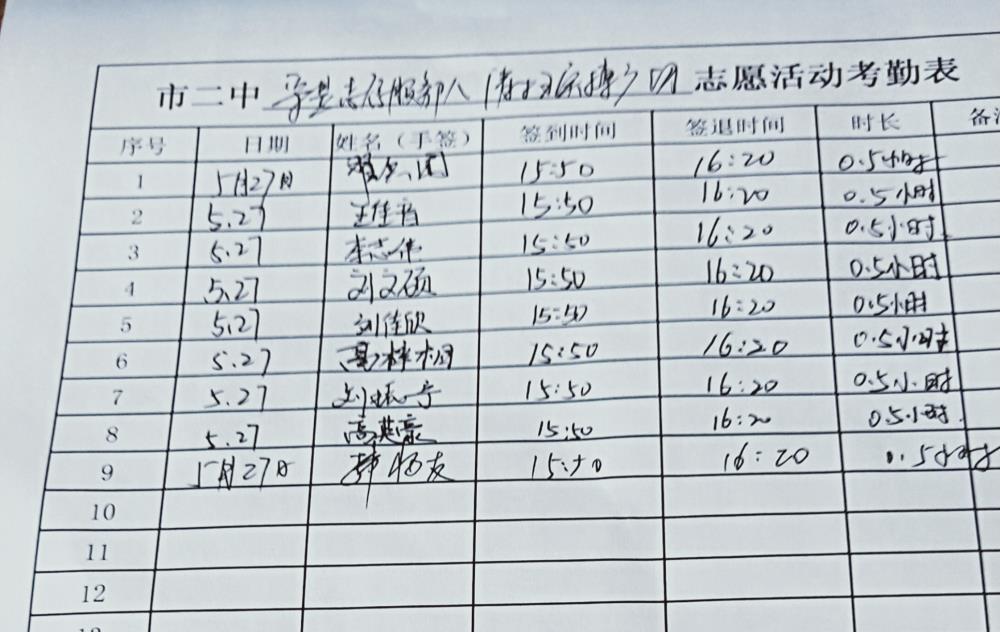 市二中 志愿服务 志愿活动考勤表
序号 日期 姓名（手签） 签到时间 签退时间 时长 备注
1 5月27日 15:50 16:20 0.5小时
2 5.27 王佳 15:50 16:20 0.5小时
3 5.27 李志伟 15:50 16:20 0.5小时
4 5.27 刘文硕 15:50 16:20 0.5小时
5 5.27 刘佳欣 15:50 16:20 0.5小时
6 5.27 高梓桐 15:50 16:20 0.5小时
7 5.27 刘 15:50 16:20 0.5小时
8 5.27 高英豪 15:50 16:20 0.5小时
9 5月27日 15:50 16:20 0.5小时
10
11
12